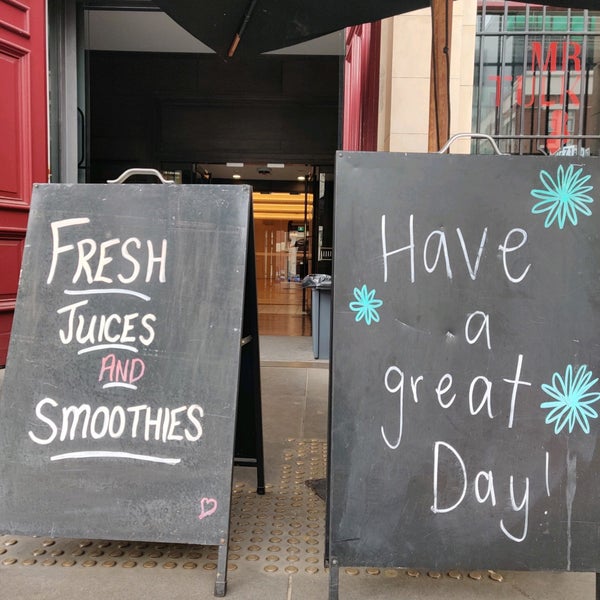 FRESH
JUICES
AND
SMOOTHIES
Have
a
great
Day!
MR
TULK